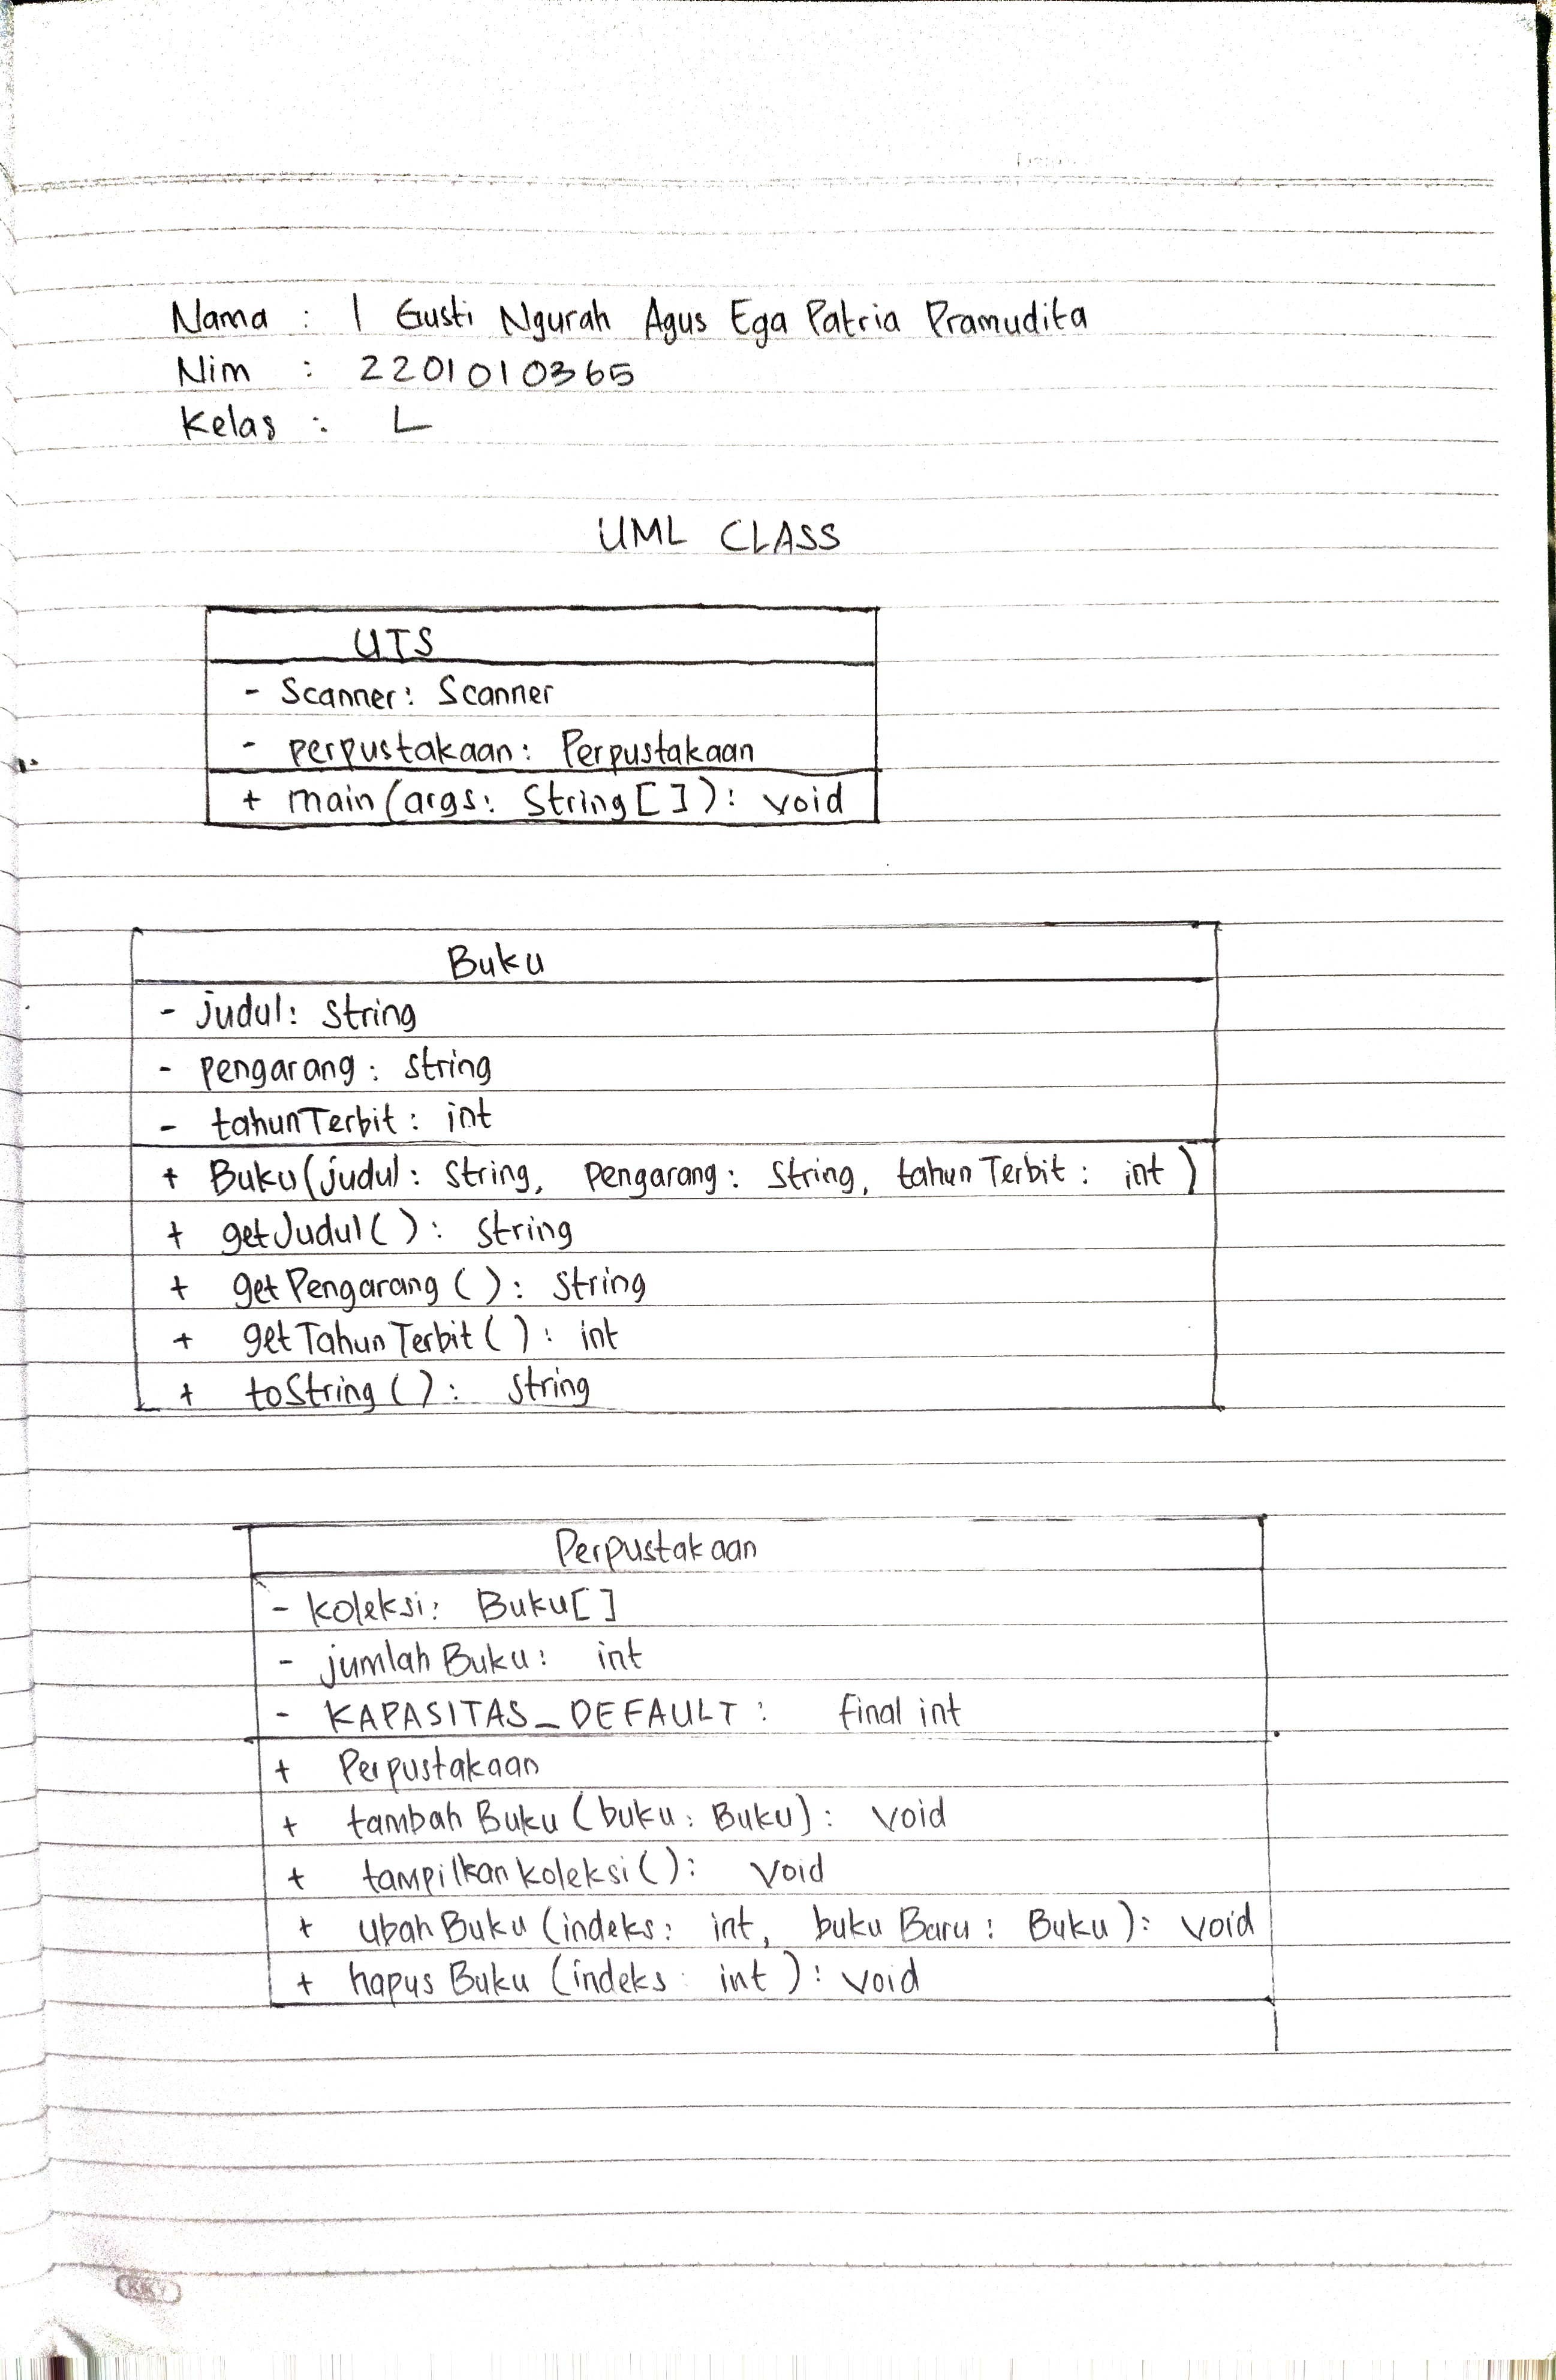 Nama : I Gusti Ngurah Agus Ega Patria Pramudita
Nim : 2201010365
Kelas : L
UML CLASS
UTS
- Scanner: Scanner
- perpustakaan: Perpustakaan
+ main(args: String[]): void
Buku
- judul: String
- pengarang: String
- tahunTerbit: int
+ Buku(judul: String, pengarang: String, tahunTerbit: int)
+ getJudul(): String
+ getPengarang(): String
+ getTahunTerbit(): int
+ toString(): String
Perpustakaan
- koleksi: Buku[]
- jumlahBuku: int
- KAPASITAS_DEFAULT: final int
+ Perpustakaan
+ tambahBuku(buku: Buku): void
+ tampilkankoleksi(): void
+ ubahBuku(indeks: int, bukuBaru: Buku): void
+ hapusBuku(indeks: int): void